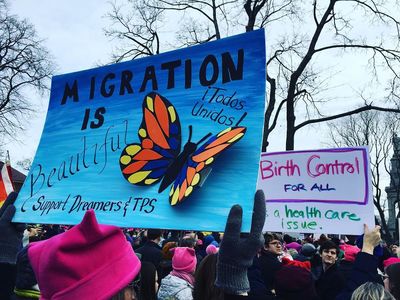 MIGRATION
IS
Beautiful
¡Todos
Unidos!
Support Dreamers & TPS
Birth Control
FOR ALL
is a health care
issue.